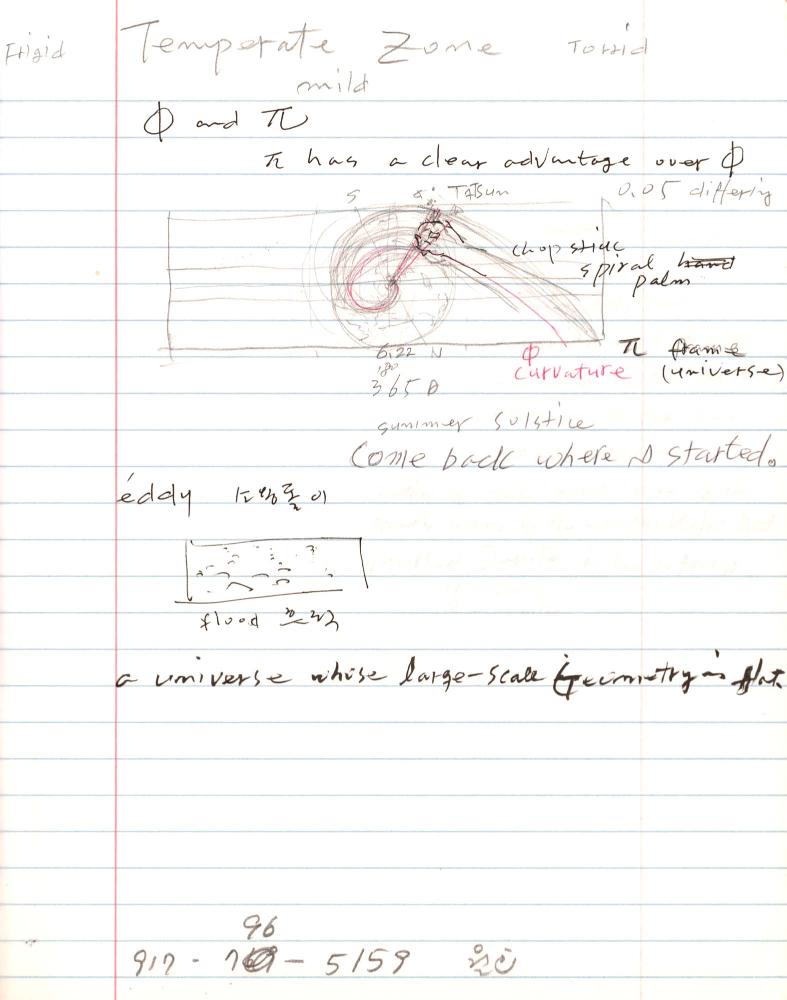 Frigid Temperate Zone Torrid
mild
Φ and π
π has a clear advantage over Φ
S Taesun 0.05 differing
chopstick
spiral hand
palm
6.22 N Φ π frame
180 curvature (universe)
365 D
summer solstice
Come back where it started.
eddy 소용돌이
flood 홍수
a universe whose large-scale Geometry is flat.
96
917 - 7 - 5159